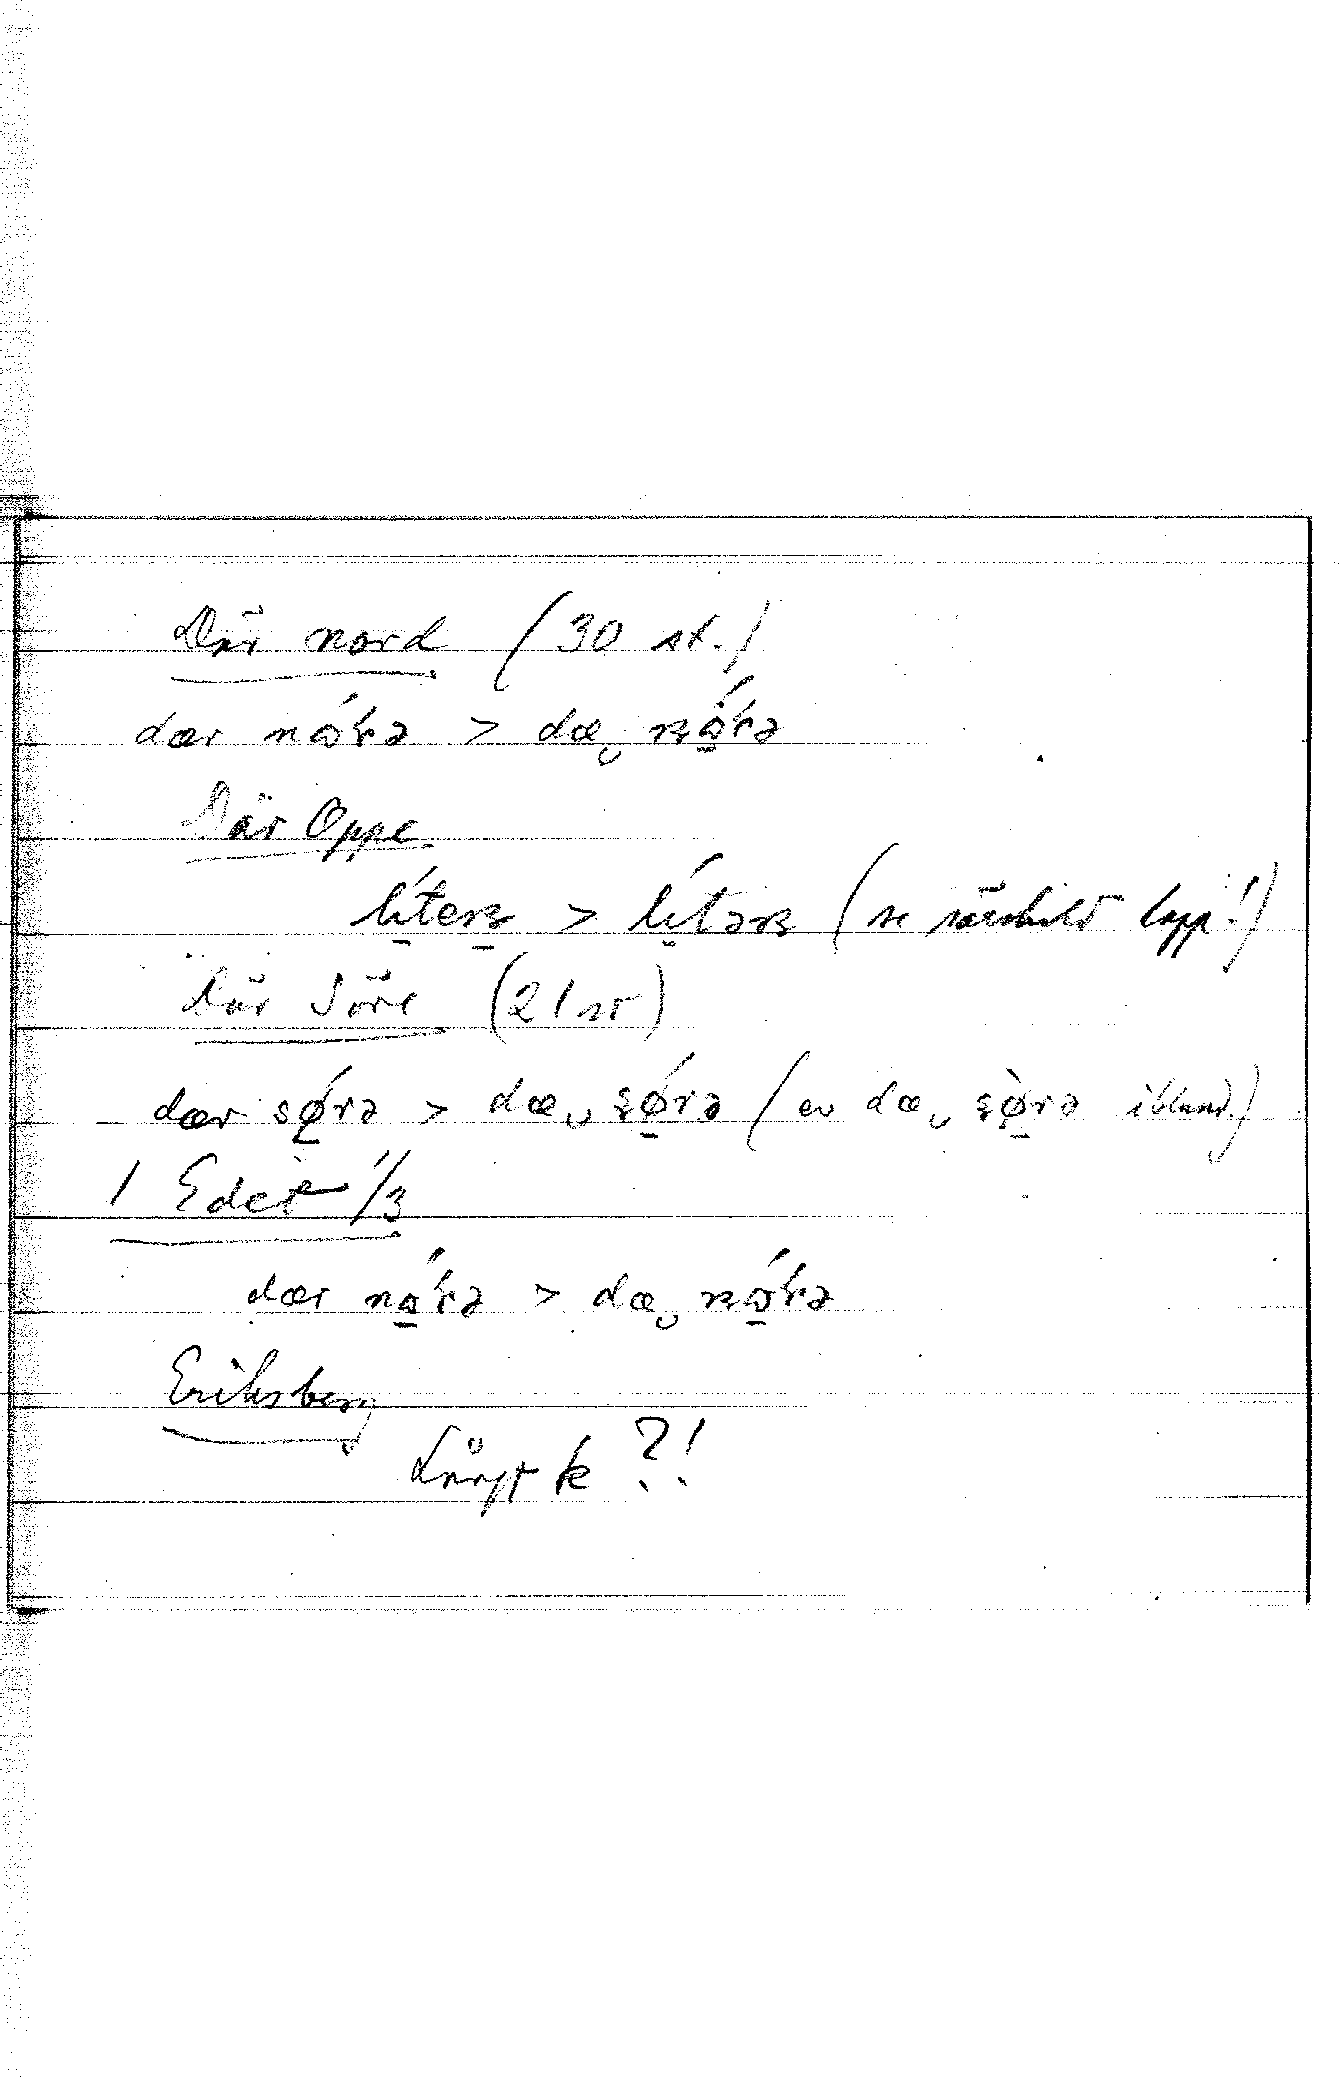 Där nord (30 st.)
dær nώ̱rə > dæ ̮ n̠ώ̱rə
Där Oppe
lі̱́ten̠ > lі̱́tən̠ (se särskild lapp!)
Där Söre (21 st)
dær sǿ̱rə > dæ ̮ s̠ǿ̱rə (ev dæ ̮ s̠ø̱̀rə ibland)
I Edet 1/3
dær nώ̱rə > dæ ̮ n̠ώ̱rə
Eriksberg
k ?!